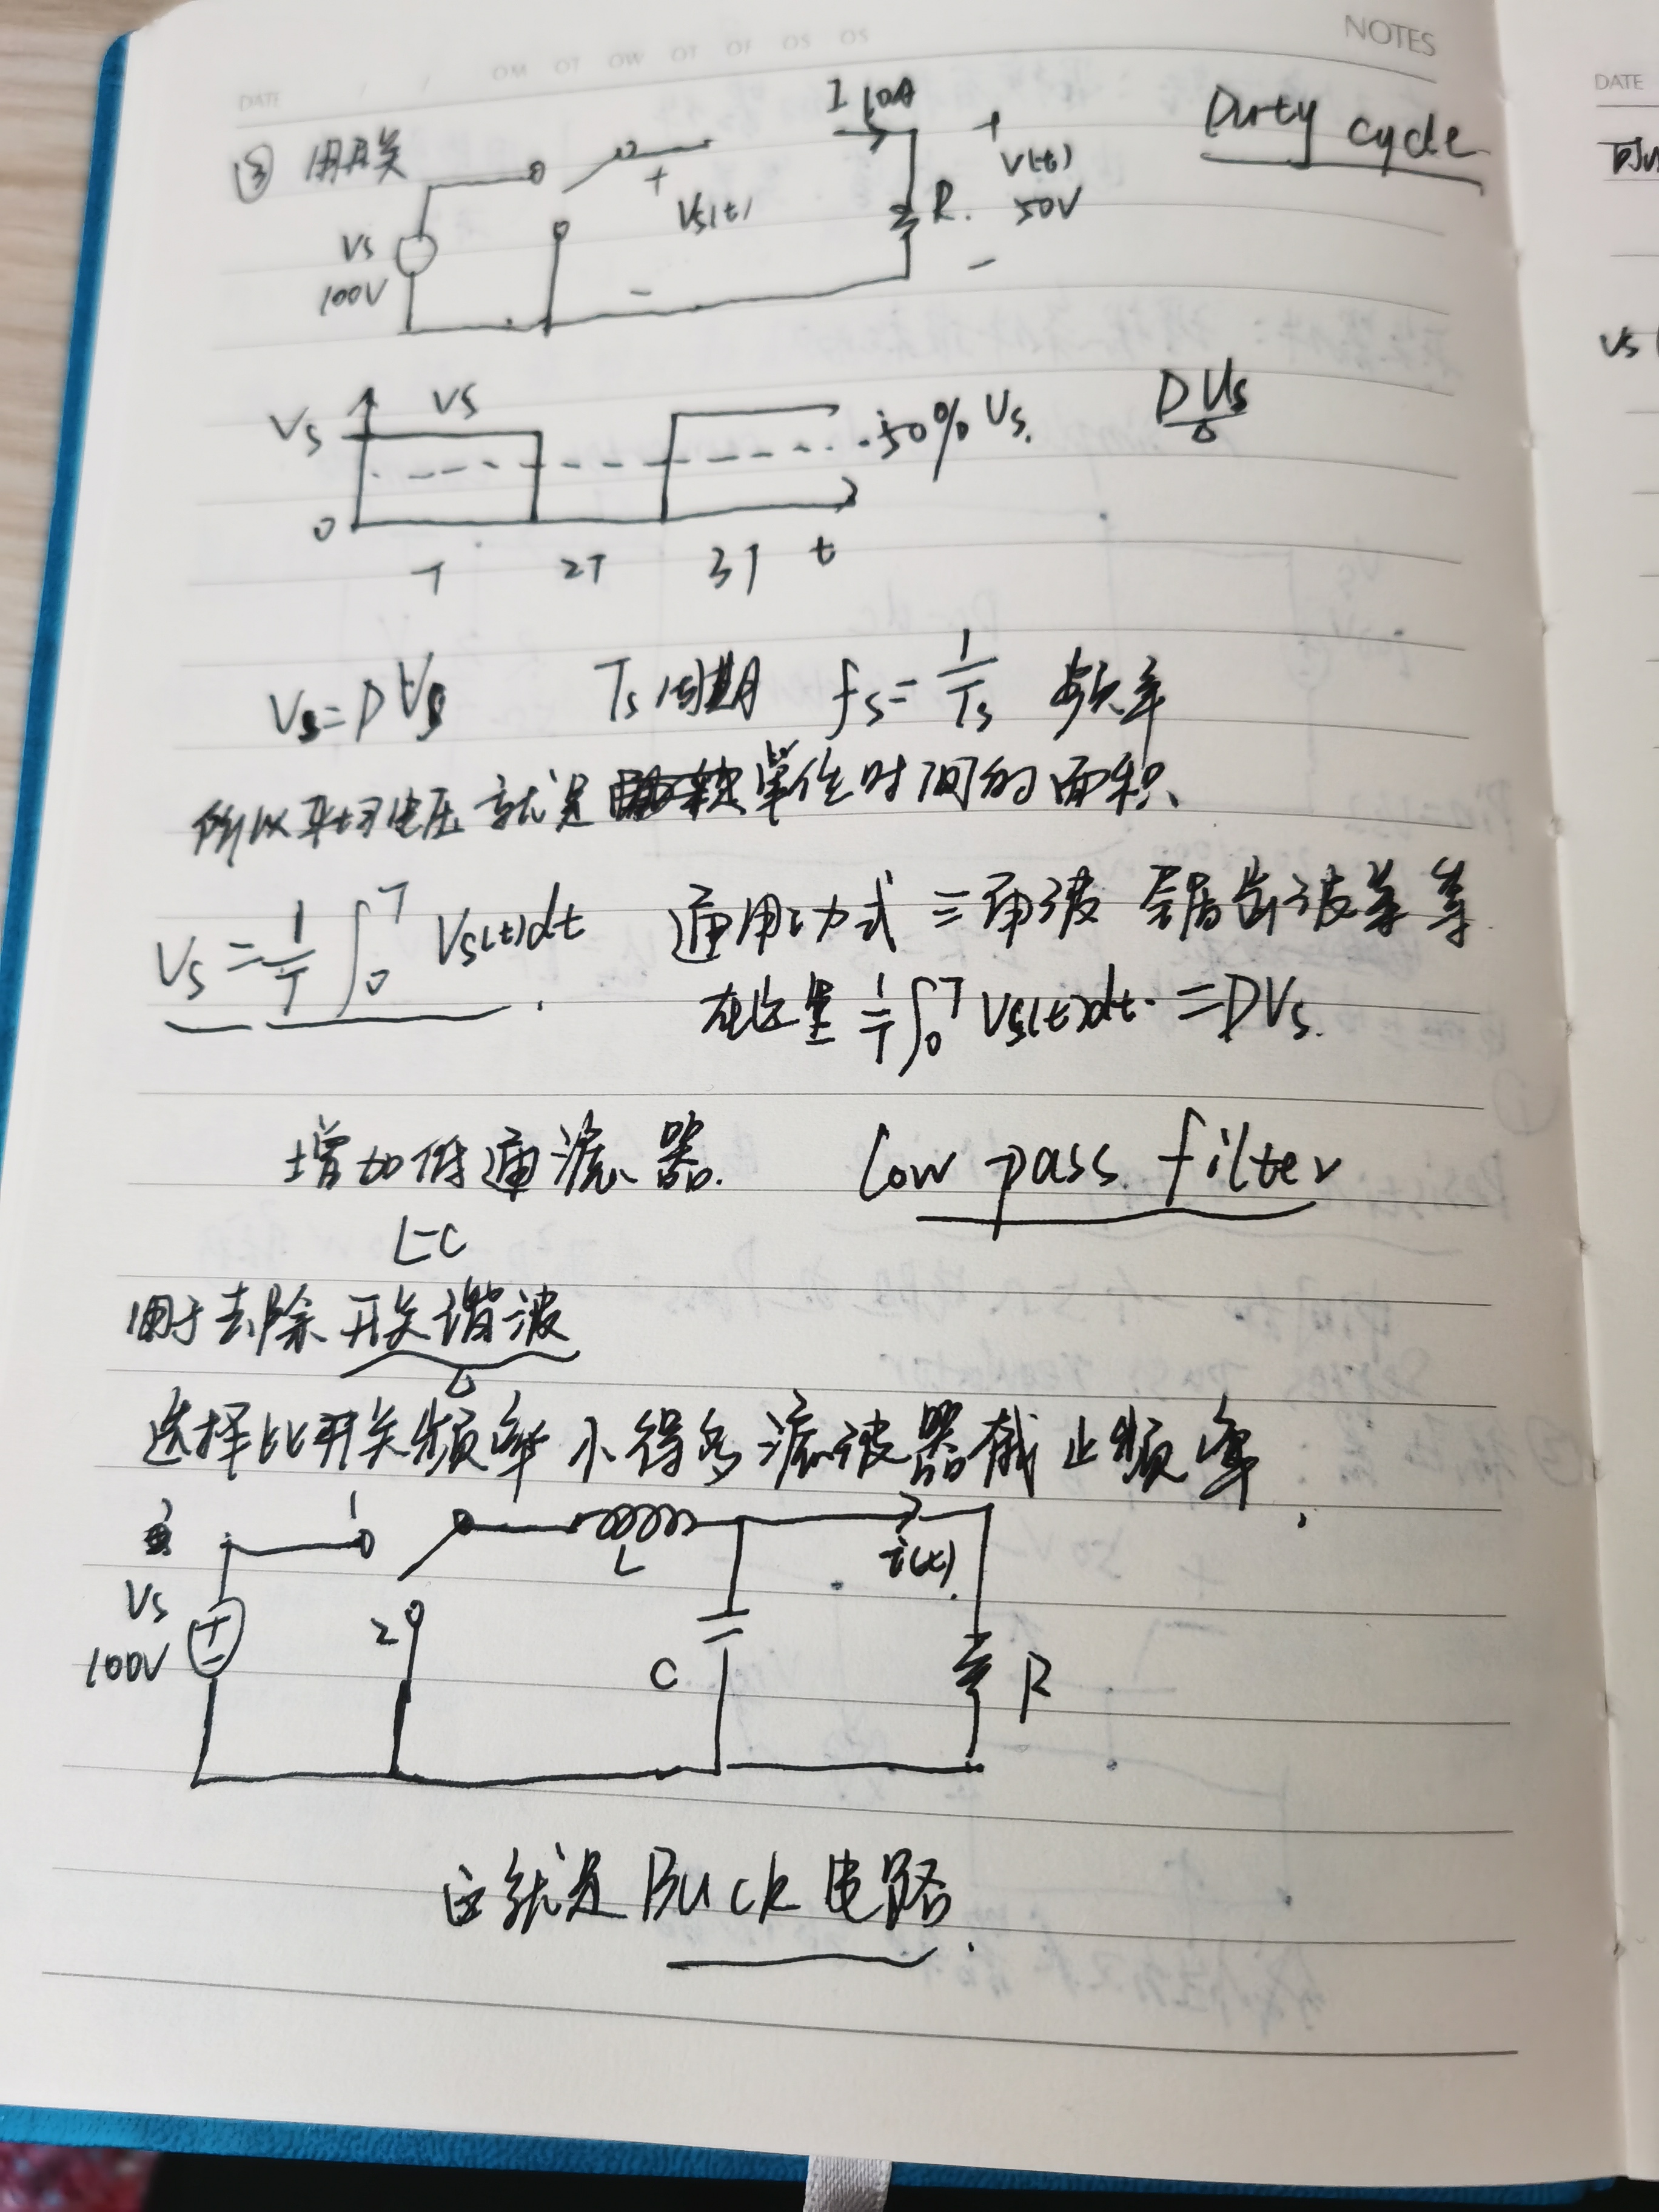 NOTES
DATE
③ 用开关
I 10A
Durty cycle
Vs
100V
+
Vs(t)
-
R.
+
V(t)
50V
-
Vs
Vs
50% Vs.
DVs
0
T 2T 3T t
Vs=DVs Ts周期 fs=1/Ts 频率
所以平均电压就是单位时间的面积、
Vs=1/T∫₀ᵀ Vs(t)dt. 通用公式 三角波 锯齿波等等
在这里 1/T∫₀ᵀ Vs(t)dt. =DVs.
增加低通滤器. Low pass filter
L-C
用于去除开关谐波
选择比开关频率小得多滤波器截止频率.
1
L
i(t).
Vs
100V
+
-
2
C
R
这就是Buck电路.
DATE
Vs